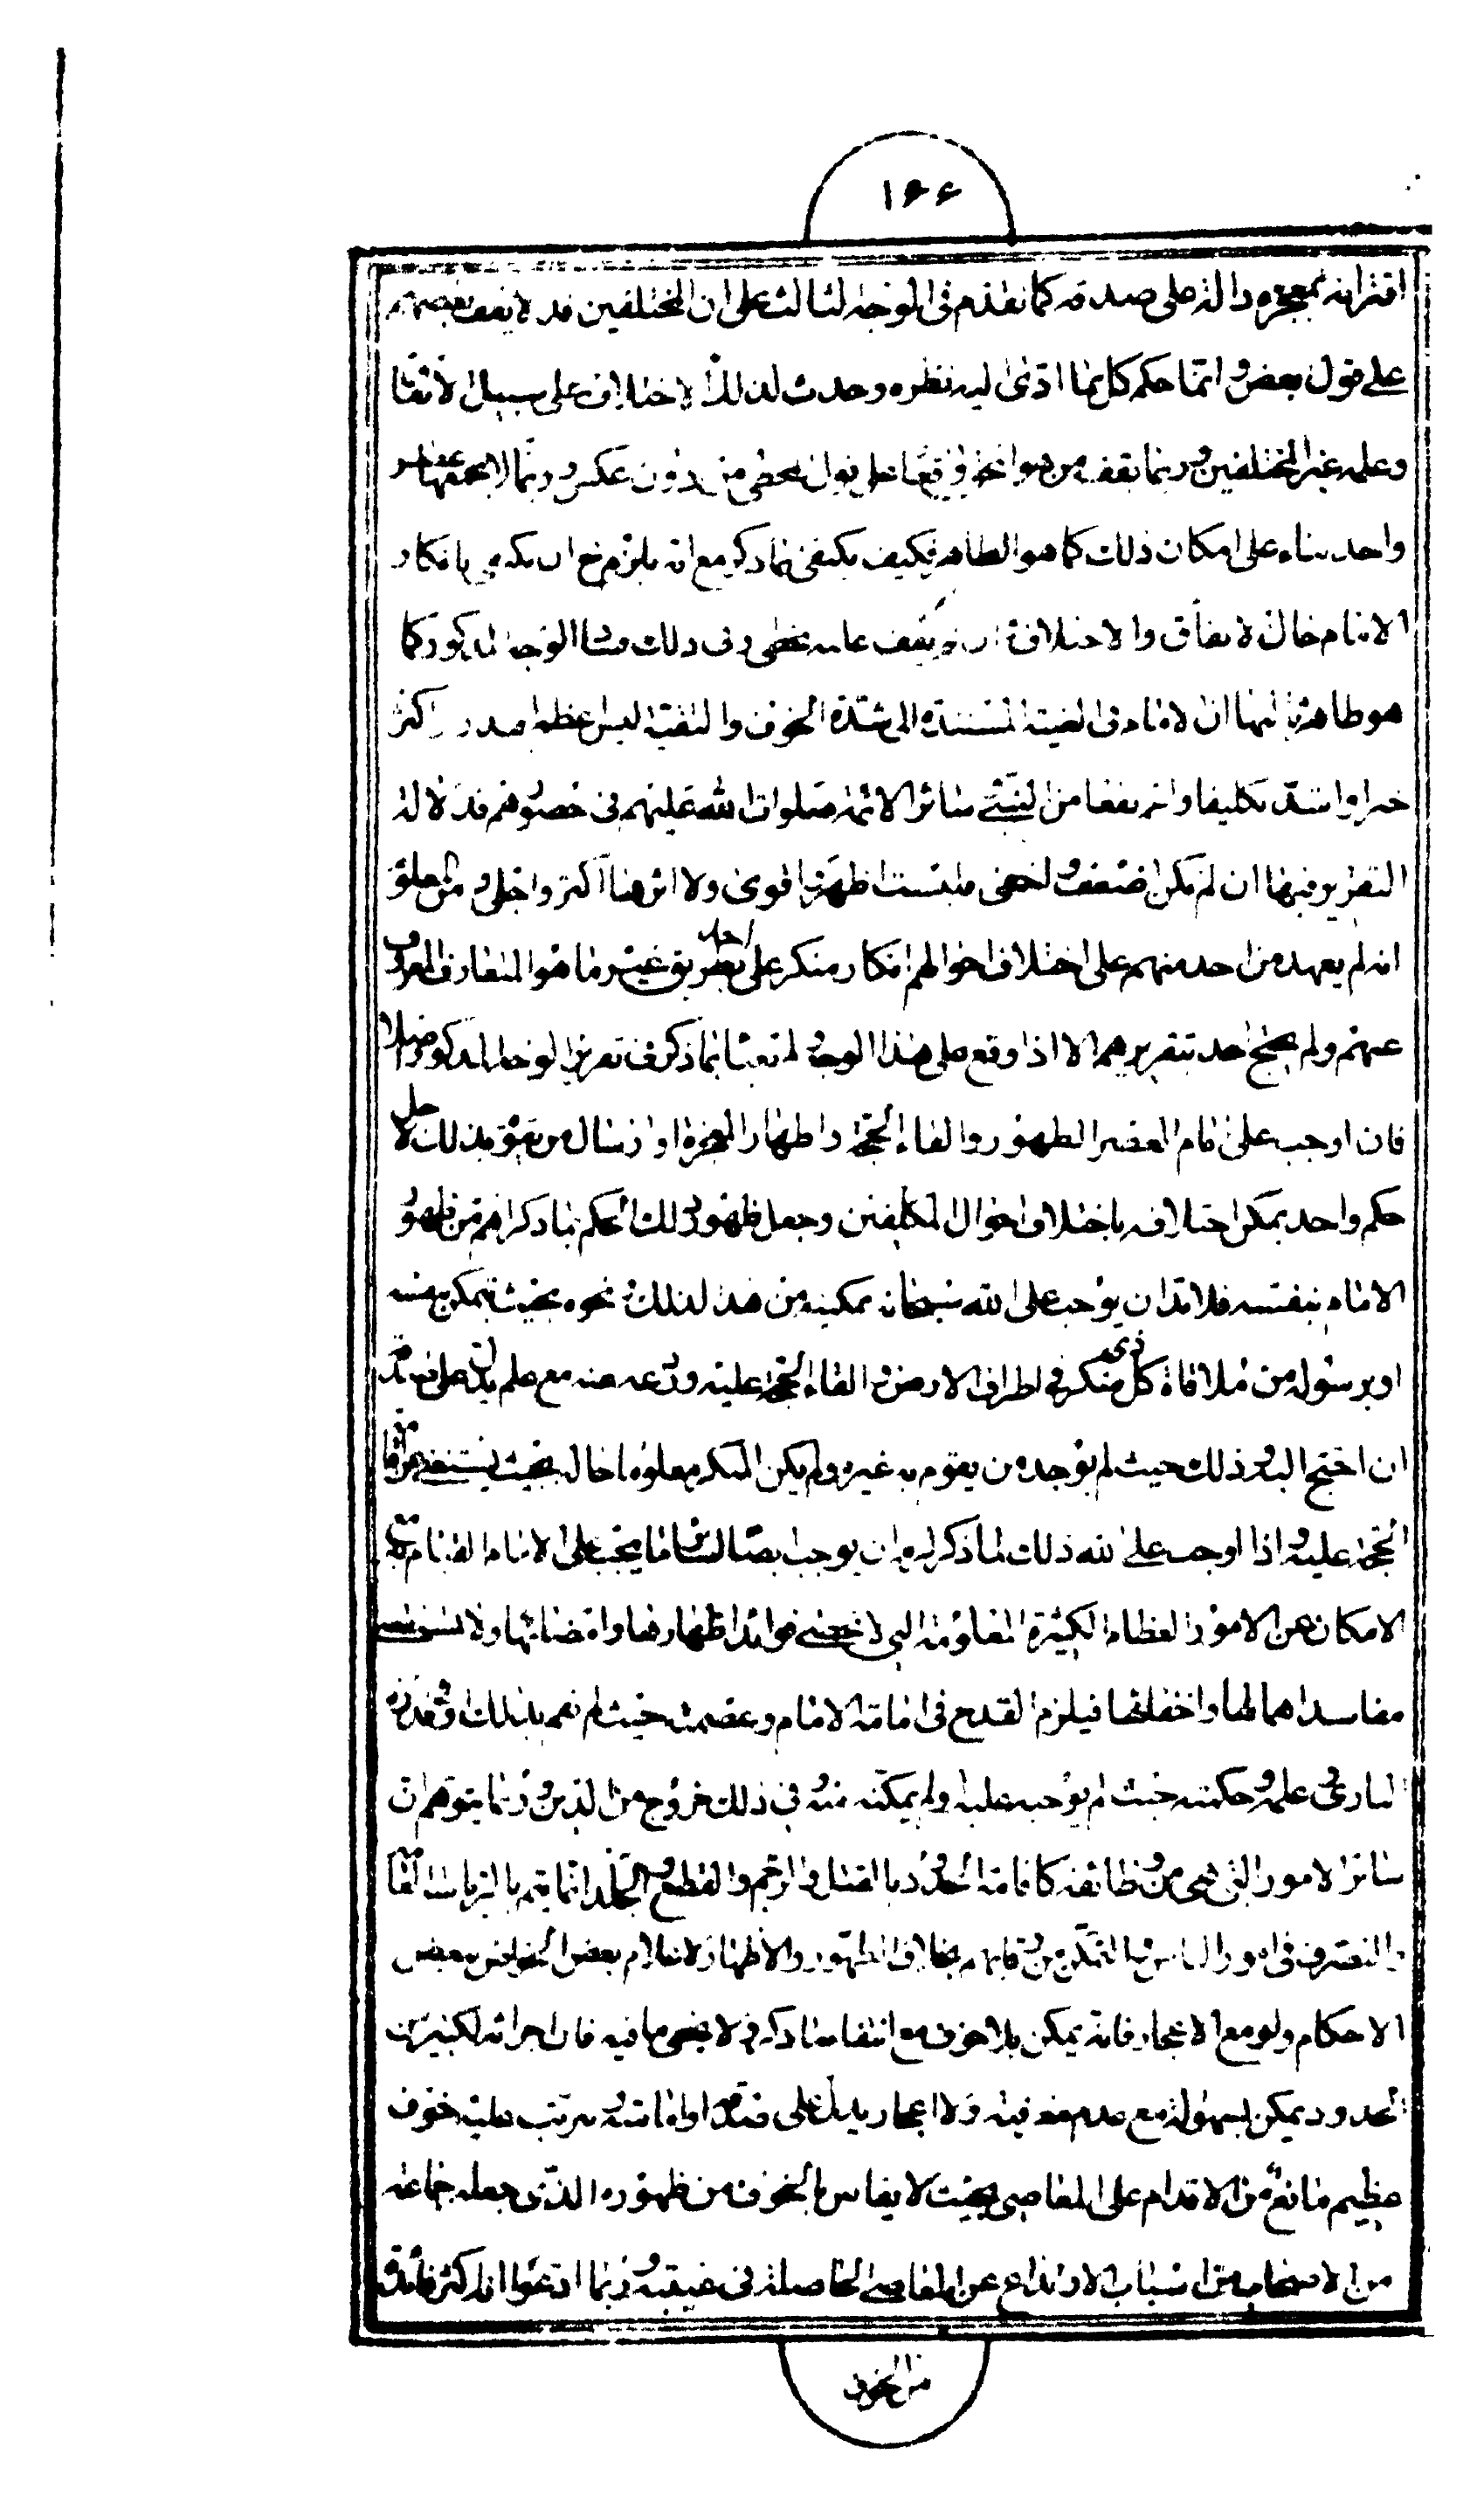 ١٦٦
اقترانه بمعجزه دالة على صدقه كما تقدم فى الوجه الثالث على ان المختلفين قد لا يقف بعضهم
على قول بعض وانما حكم كل بما ادى اليه نظره وحدث لذلك الاختلاف على سبيل الاتفاق
وعلمه غير المختلفين وربما يقف من هو
واحد بناء على امكان ذلك كما هو الظاهر فكيف يكتفى بما ذكر مع انه يلزم ح ان
الامام حال الاتفاق والاختلاف يقف عليه وفى ذلك الوجه المذكور كما
هو ظاهر ثانيها ان الامام فى الغيبة المستندة الى شدة الخوف والتقية ليس اعظم قدرا واكثر
خبرا واشد تكليفا واتم نفعا من النبى وسائر الائمة صلوات الله عليهم فى حضورهم فدلالة
التقرير فيها ان لم يكن اضعف واخفى فليست اظهر واقوى ولا اثرها اكثر واجلى ومن المعلوم
انه لم يعهد من احد منهم على اختلاف احوالهم انكار منكر على احد بطريق غير ما هو المتعارف المعروف
عنهم ولم يحتج احد بتقريرهم الا اذا وقع على هذا الوجه لم تعبنا بما ذكر فى تقرير الوجه المذكور اصلا
فان اوجب على امام العصر الظهور والقاء الحجة واظهار المعجزة او ارسال من يقوم بذلك لاجل
حكم واحد يمكن اختلافه باختلاف احوال المكلفين وجعل ظهور ذلك الحكم بما ذكر اهم من ظهور
الامام بنفسه فلا بد ان يوجب على الله سبحانه تمكينه من هذا لذلك ونحوه بحيث يتمكن بنفسه
او برسوله من ملاقاة كل ذى منكر فى اطراف الارض والقاء الحجة عليه وردعه عنه مع علم
ان احتج اليه وذلك حيث لم يوجد من يقوم به غيره ولم يكن المنكر معلوما حاله بحيث يستغنى عن اقامة
الحجة عليه واذا اوجب على الله ذلك لما ذكر لزمه ان يوجب ايضا سائر ما يجب على الامام القيام به مع
الامكان من الامور العظام الكثيرة المعلومة التى لا تحصى فوائد اظهارها وامضائها ولا تستقصى
مفاسد اهمالها واخفائها فيلزم القدح فى امامة الامام وعصمته حيث لم يقم بذلك وقدرة
البارى وعلمه وحكمته حيث لم يوجبه عليه ولم يمكنه منه وفى ذلك خروج من الدين وربما يتوهم ان
سائر الامور التى هى من وظائفه كاقامة الحدود بالقتل والرجم والقطع والجلد انما يتم بالرياسة العامة
والتصرف فى امور الناس والتمكن من رقابهم بخلاف الظهور والاظهار لاعلام بعض الخواص ببعض
الاحكام ولو مع الاعجاز فانه يمكن بلا خوف مع انتفاء ما ذكر ولا يخفى ما فيه فان اجرائه لكثير من
الحدود يمكن بسهولة مع عدم خوف فيه ولا اعجاز يدل على امامته ويترتب عليه خوف
عظيم مانع من الاقدام على المعاصى بحيث لا يقاس بالخوف من ظهوره الذى جعله جماعة
من الاصحاب من اسباب الارتداع عن المعاصى الحاصلة فى غيبته وربما ادعوا انه اكثر فائدة
من الخوف